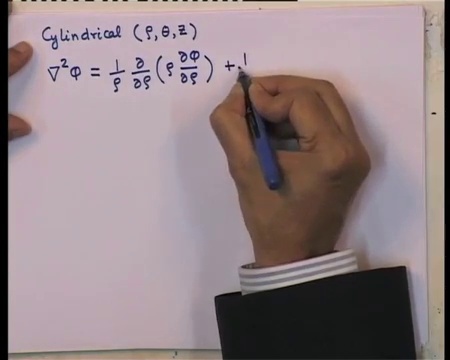 Cylindrical (ρ, θ, z)
∇²φ = 1/ρ ∂/∂ρ (ρ ∂φ/∂ρ) + 1